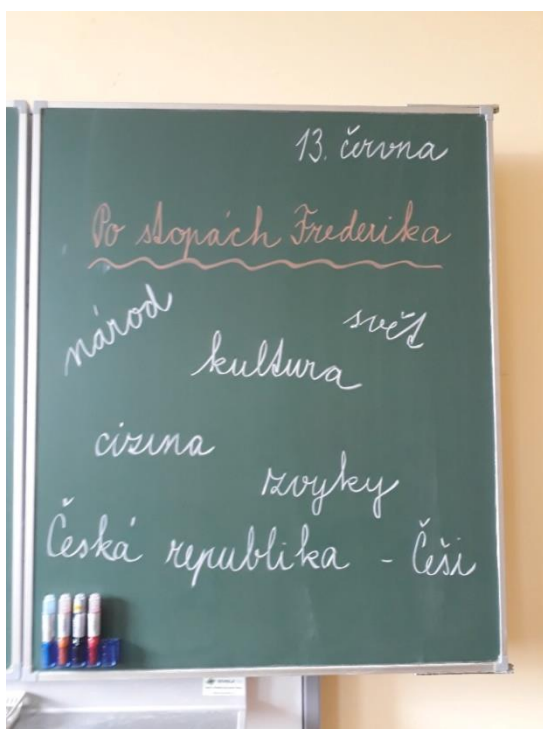 13. června
Po stopách Frederika
národ
svět
kultura
cizina
zvyky
Česká republika - Češi